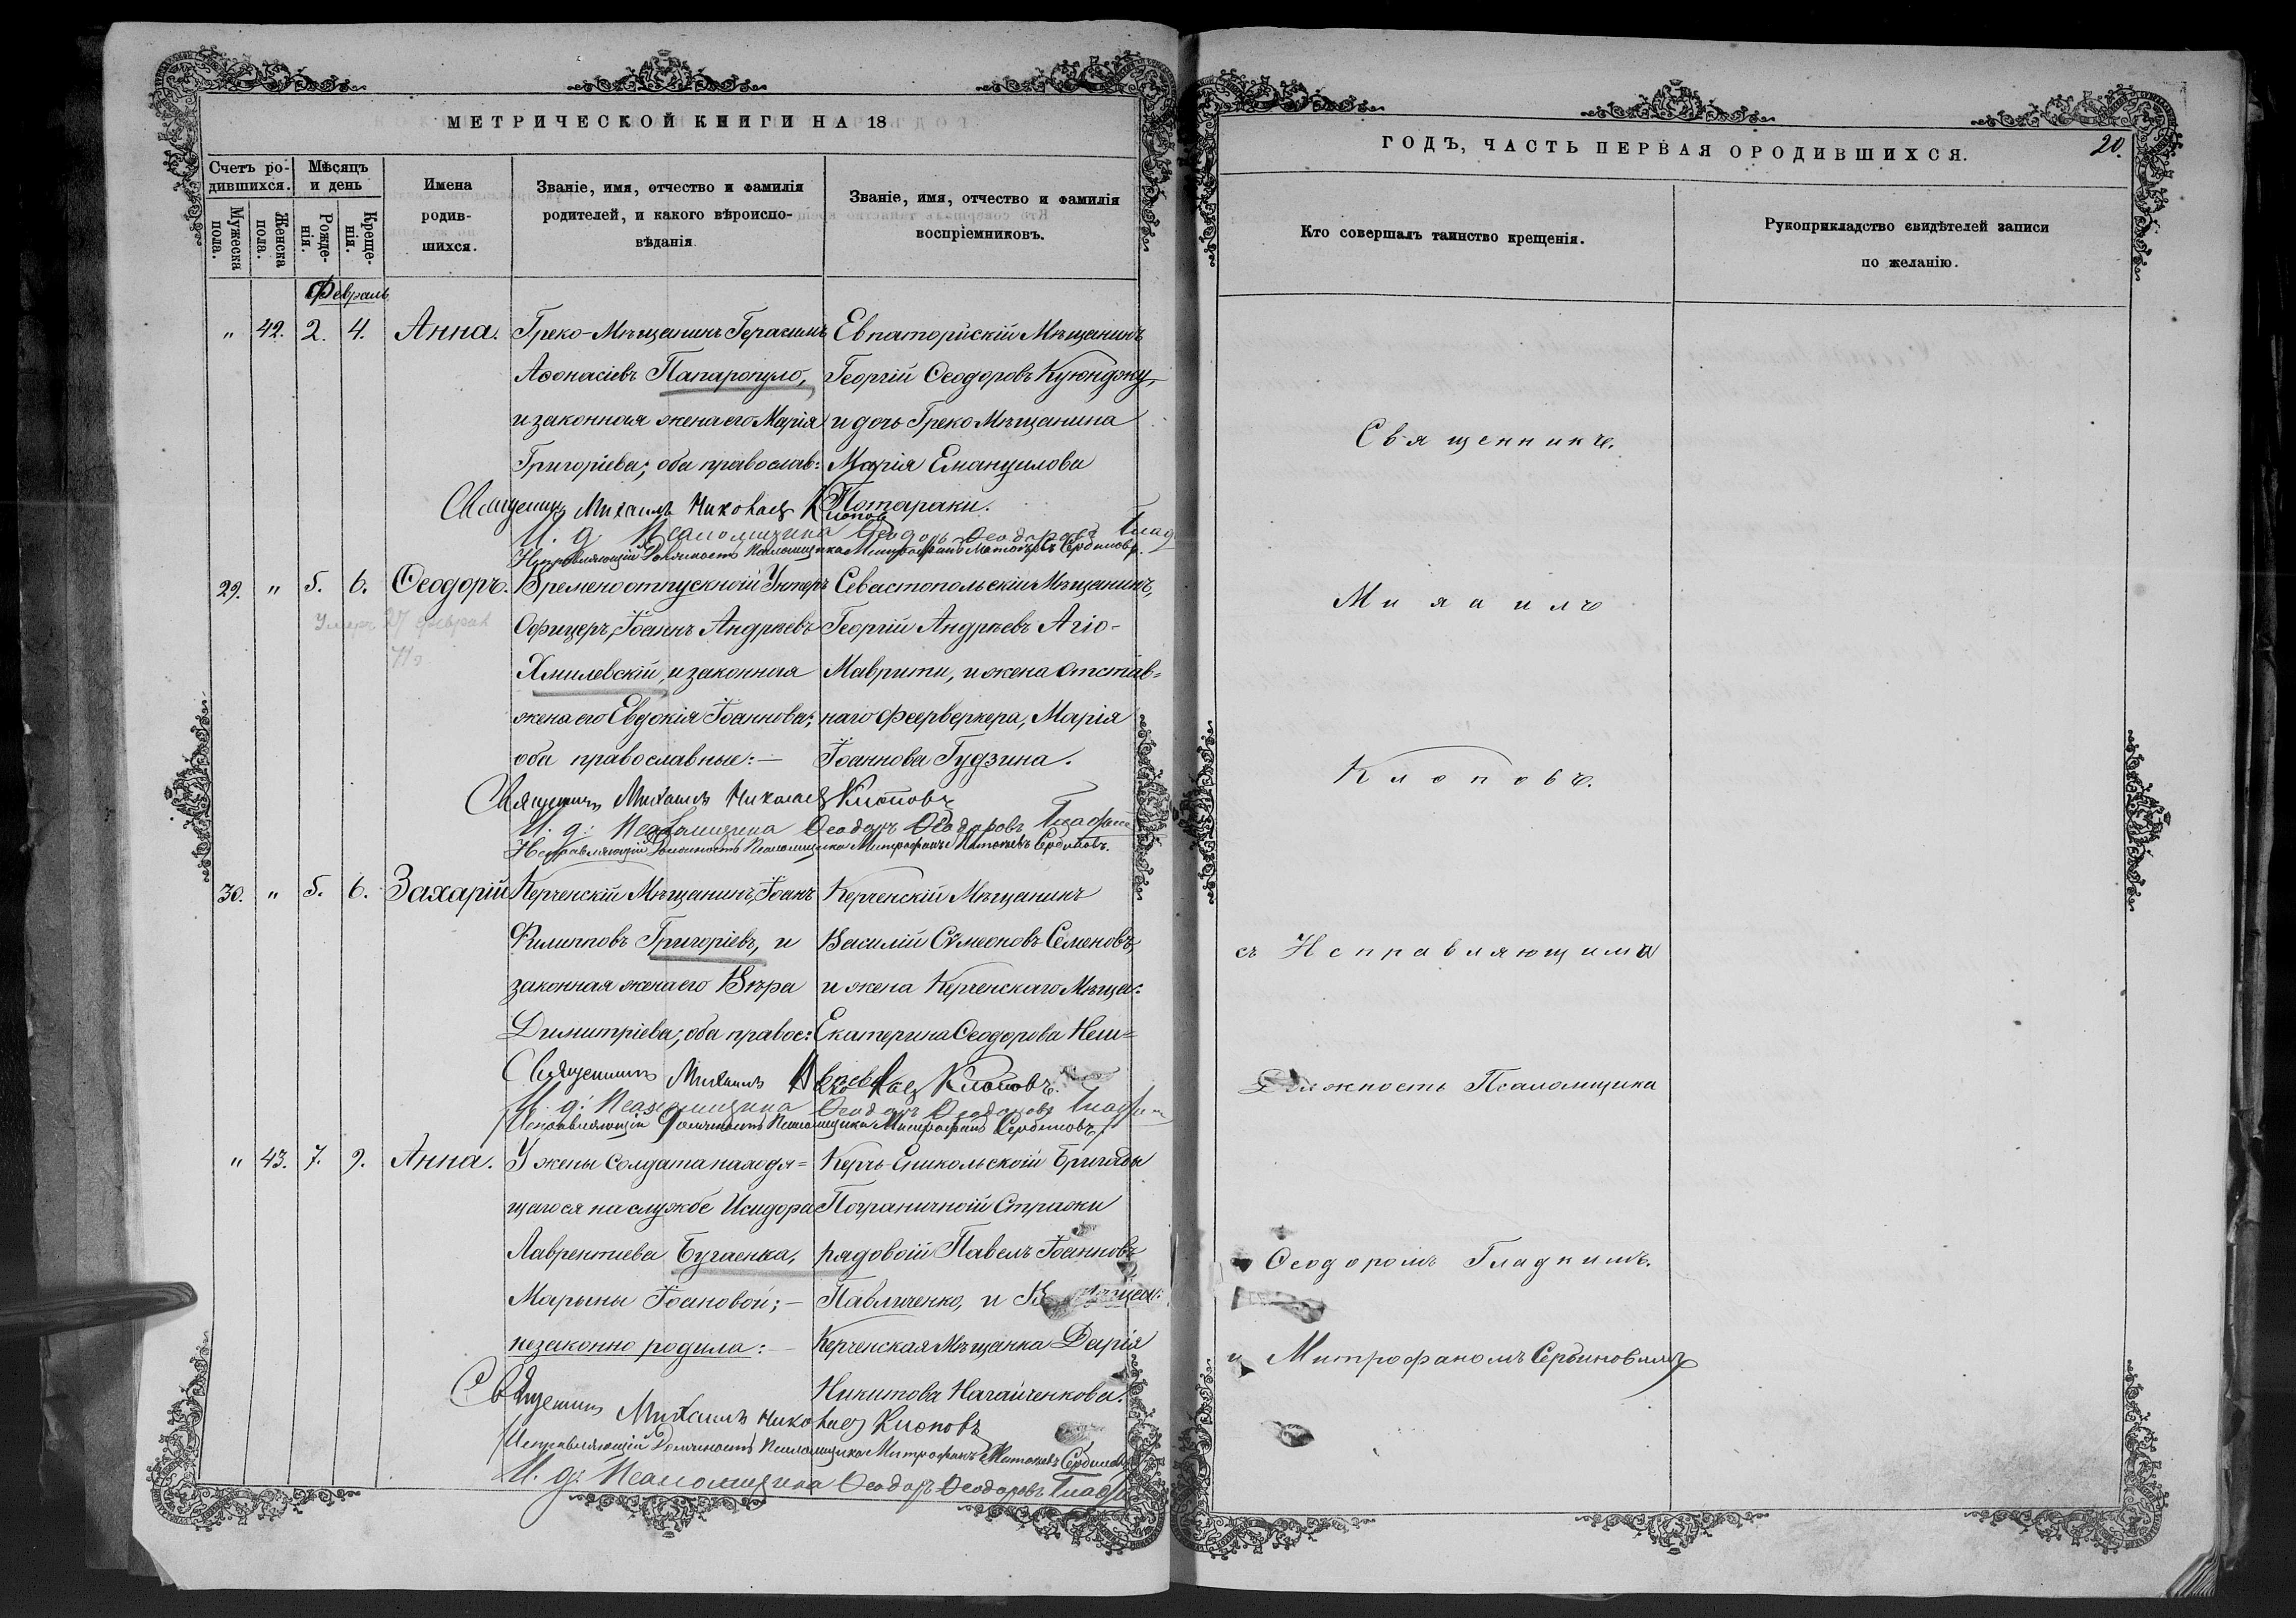 МЕТРИЧЕСКОЙ КНИГИ НА 18
Счетъ ро-
дившихся.
Мужеска пола.
Женска пола.
Мѣсяцъ
и день
Рожде-
нія.
Креще-
нія.
Имена
родив-
шихся.
Званіе, имя, отчество и фамилія
родителей, и какого вѣроиспо-
вѣданія
Званіе, имя, отчество и фамилія
воспріемниковъ.
Февраль
" 42. 2. 4. Анна.
Греко-Мѣщанинъ Герасимъ
Аѳонасіевъ Папаропуло,
и законная жена его Марія
Григоріева; оба православ:
Евпаторійскій Мѣщанинъ
Георгій Ѳеодоровъ Куюнджу,
и дочь Греко Мѣщанина
Марія Емануилова
Потараки.
Священникъ Михаилъ Николаев Клоповъ
И. д. Псаломщика Ѳеодоръ Ѳеодоровъ Глад
Исправляющій Должность Псаломщика Митрофанъ Сербиновъ.
29. " 5. 6. Ѳеодоръ.
Умеръ 27 феврал
71 г.
Временоотпускной Унтеръ
Офицеръ, Іоаннъ Андрѣевъ
Хмилевскій, и законная
жена его Евдокія Іоаннова;
оба православные: —
Севастопольскій Мѣщанинъ,
Георгій Андрѣевъ Агіо-
Маврити, и жена Отстав-
наго феерверкера, Марія
Іоаннова Гудзина.
Священникъ Михаилъ Николаев Клоповъ
И. д. Псаломщика Ѳеодоръ Ѳеодоровъ Глад
Исправляющій Должность Псаломщика Митрофанъ Сербиновъ.
30. " 5. 6. Захарій
Керченскій Мѣщанинъ, Іоанъ
Филипповъ Григоріевъ, и
законная жена его Вѣра
Димитріева; оба правос:
Керченскій Мѣщанинъ
Василій Сѵмеоновъ Семеновъ,
и жена Керченскаго Мѣща:
Екатерина Ѳеодорова Неш-
Священникъ Михаилъ Клоповъ.
И. д. Псаломщика Ѳеодоръ Ѳеодоровъ
Исправляющій Должность Псаломщика Митрофанъ Сербиновъ.
" 43. 7. 9. Анна.
У жены Солдата находя-
щагося на службе Исидора
Лаврентиева Бугаенка,
Марыны Іоановой; —
незаконно родила: —
Керчь-Еникольской Бригады
Пограничной Стражи
рядовой Павелъ Іоанновъ
Павличенко, и
Керченская Мѣщанка Дарія
Никитова Нагайченкова.
Священникъ Михаилъ Николаев Клоповъ
Исправляющій Должность Псаломщика Митрофанъ Сербиновъ
И. д. Псаломщика Ѳеодоръ Ѳеодоровъ
ГОДЪ, ЧАСТЬ ПЕРВАЯ О РОДИВШИХСЯ.
20.
Кто совершалъ таинство крещенія.
Рукоприкладство свидѣтелей записи
по желанію.
Священникъ.
Михаилъ
Клоповъ.
съ Исправляющима
Должность Псаломщика
Ѳеодоромъ Гладкимъ.
и Митрофаномъ Сербиновымъ